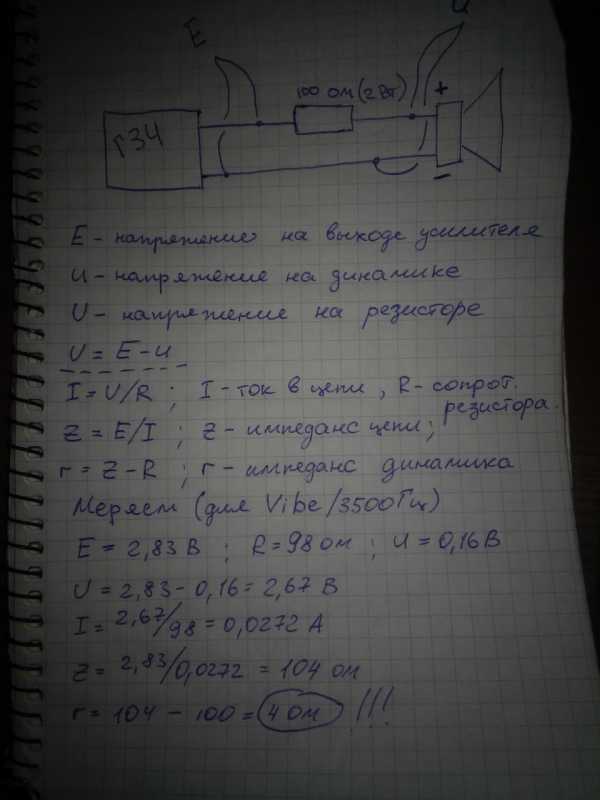 E
u
100 ом (2 Вт)
+
ГЗЧ
-
E - напряжение на выходе усилителя
u - напряжение на динамике
U - напряжение на резисторе
U = E - u
I = U/R ; I - ток в цепи , R - сопрот. резистора.
z = E/I ; z - импеданс цепи ;
r = z - R ; r - импеданс динамика
Меряем (для Vibe/3500Гц)
E = 2,83 В ; R = 98 ом ; u = 0,16 В
U = 2,83 - 0,16 = 2,67 В
I = 2,67/98 = 0,0272 А
z = 2,83/0,0272 = 104 ом
r = 104 - 100 = 4 ом !!!